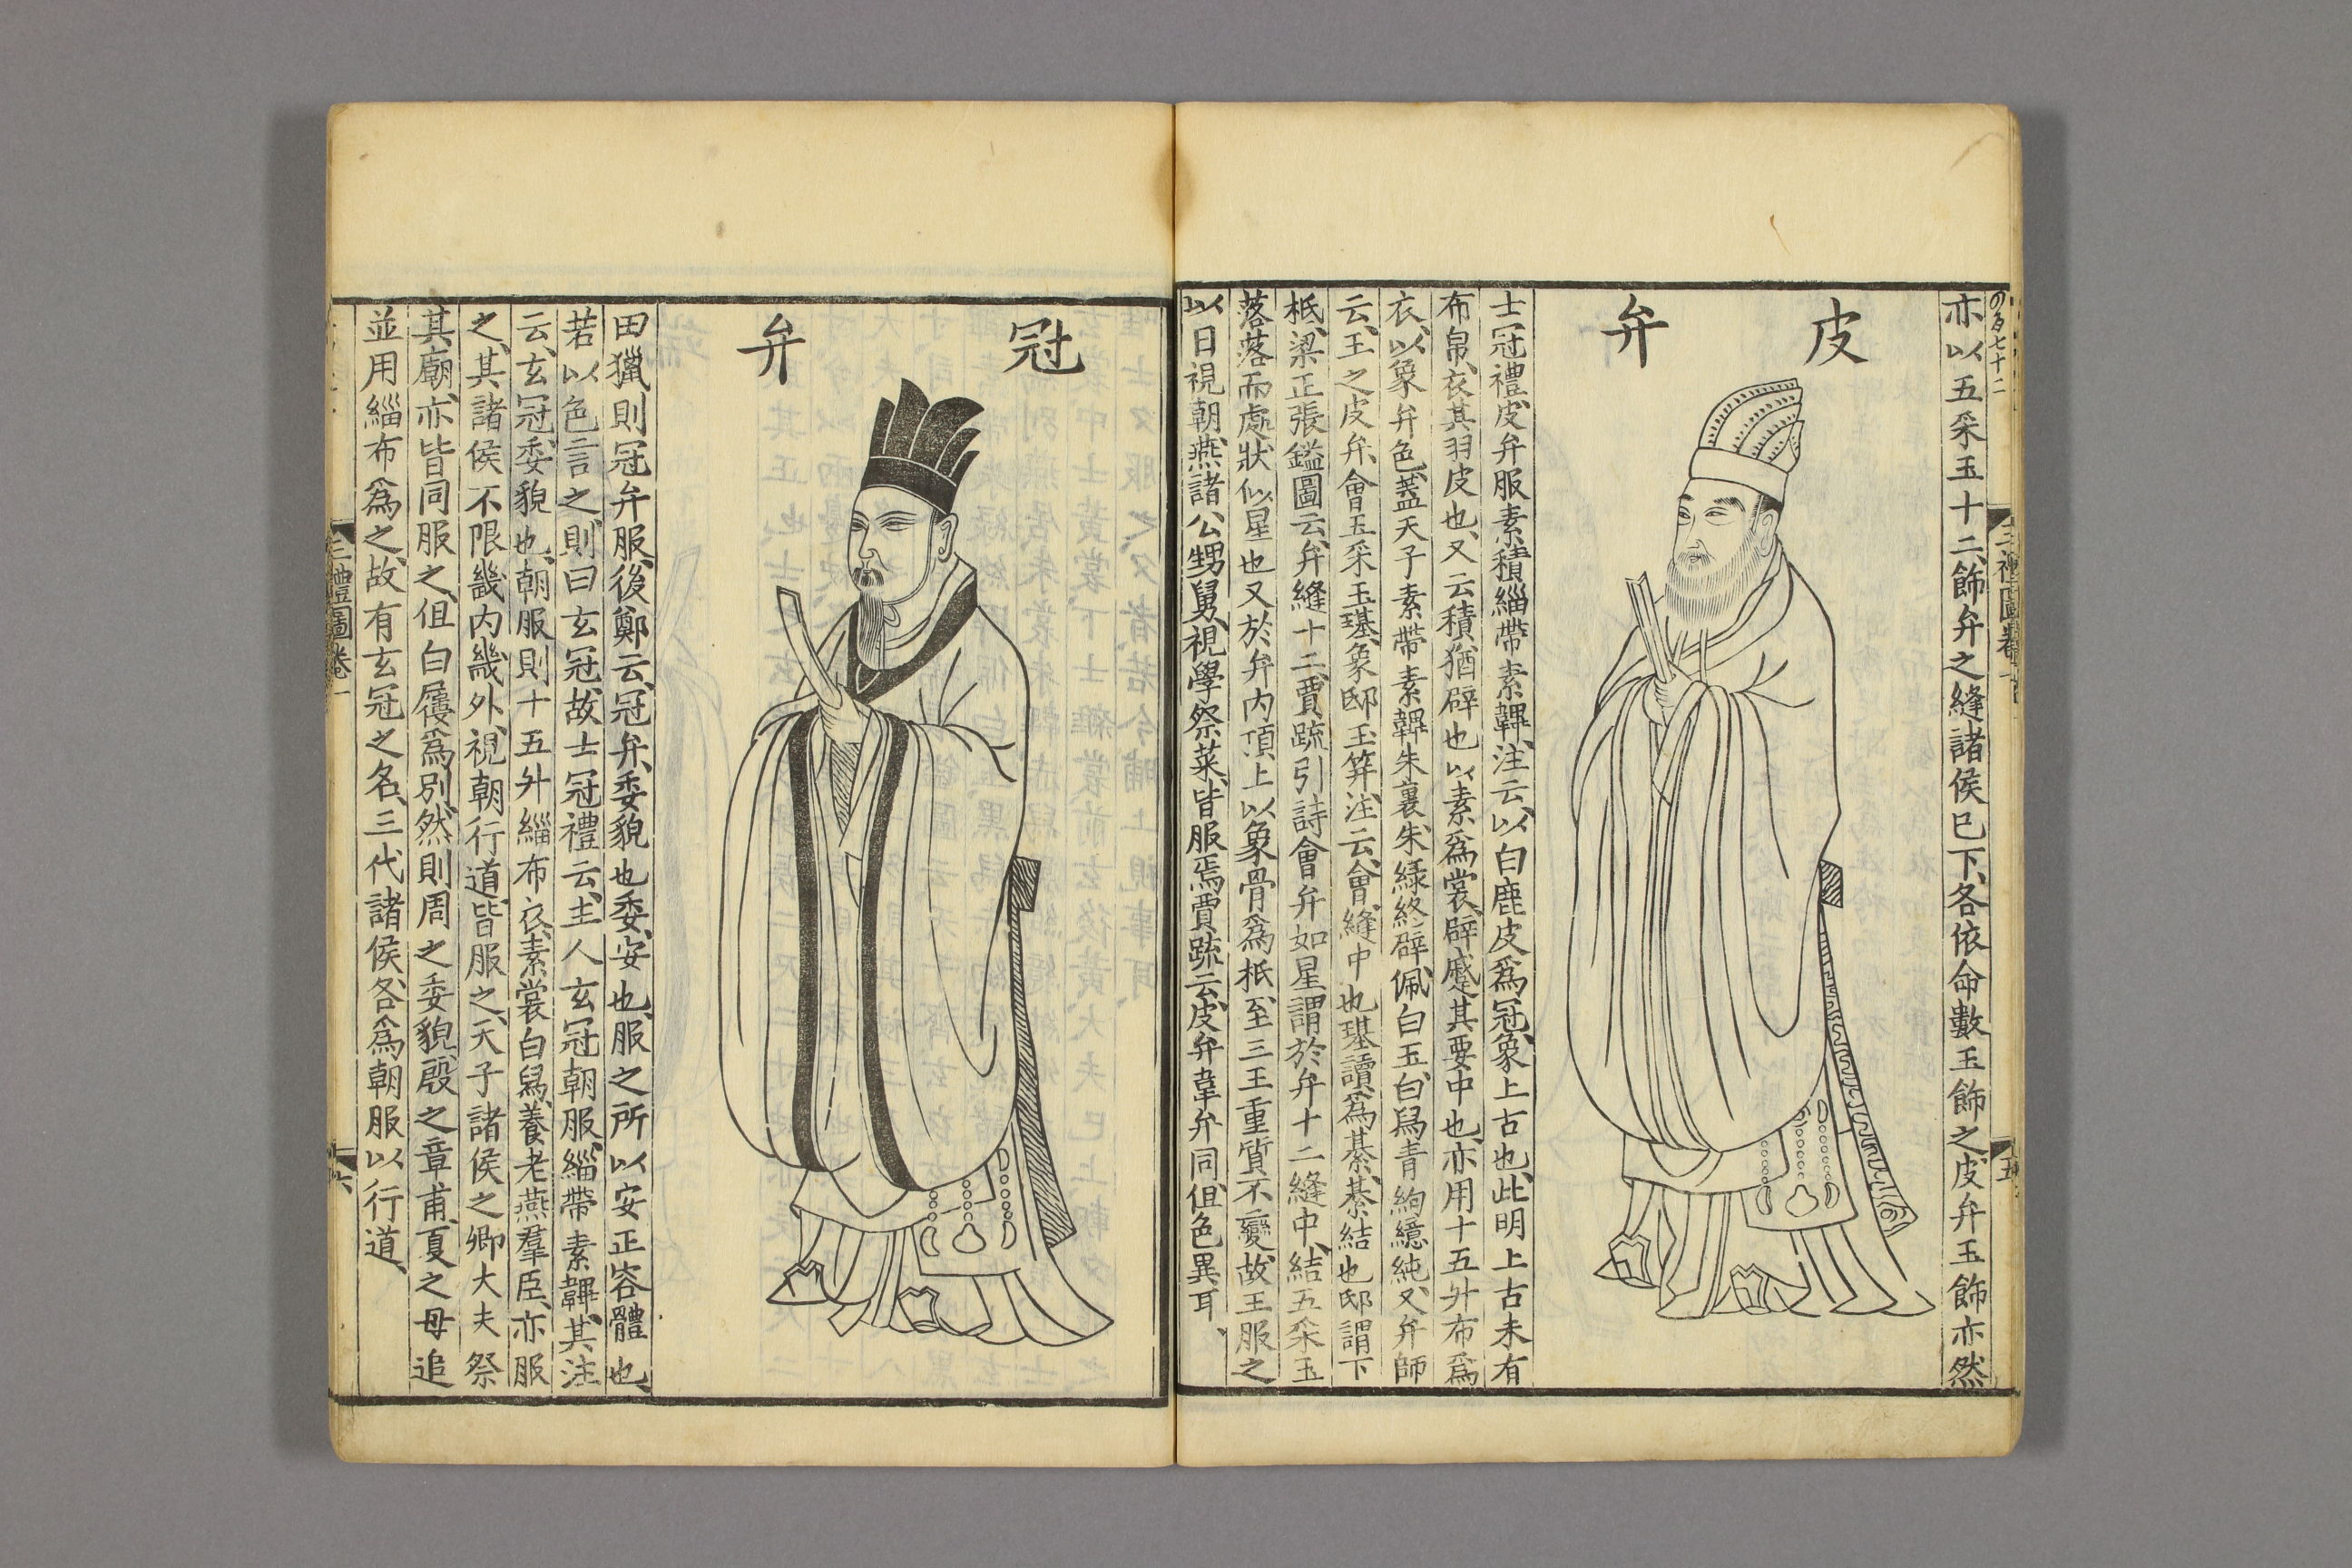 亦以五采玉十二飾弁之縫諸侯巳下、各依命數玉飾之皮弁玉飾亦然
皮弁
士冠禮皮弁服素積緇帶素韠注云以白鹿皮爲冠象上古也此明上古未有
布帛、衣其羽皮也、又云積猶辟也以素爲裳辟蹙其要中也亦用十五升布爲
衣、以象弁色、蓋天子素帶素韠朱裏朱綠終辟佩白玉白舄青絇繶純又弁師
云、王之皮弁會五采玉璂象邸玉笄注云、會縫中也璂讀爲綦、綦結也邸謂下
柢、梁正張鎰圖云弁縫十二賈疏引詩會弁如星謂於弁十二縫中、結五采玉
落落而處狀似星也又於弁内頂上以象骨爲柢至三王重質不變故王服之
以日視朝燕諸公甥舅視學祭菜皆服焉賈疏云皮弁韋弁同但色異耳、
三禮圖卷一
五
冠弁
田獵則冠弁服後鄭云冠弁委貌也委安也服之所以安正容體也、
若以色言之則曰玄冠故士冠禮云、主人玄冠朝服緇帶素韠其注
云、玄冠委貌也、朝服則十五升緇布衣素裳白舄、養老燕羣臣、亦服
之、其諸侯不限畿内畿外、視朝行道、皆服之、天子諸侯之卿大夫祭
其廟、亦皆同服之、但白屨爲別、然則周之委貌殷之章甫夏之毋追
並用緇布爲之、故有玄冠之名、三代諸侯各爲朝服以行道、
三禮圖卷一
六